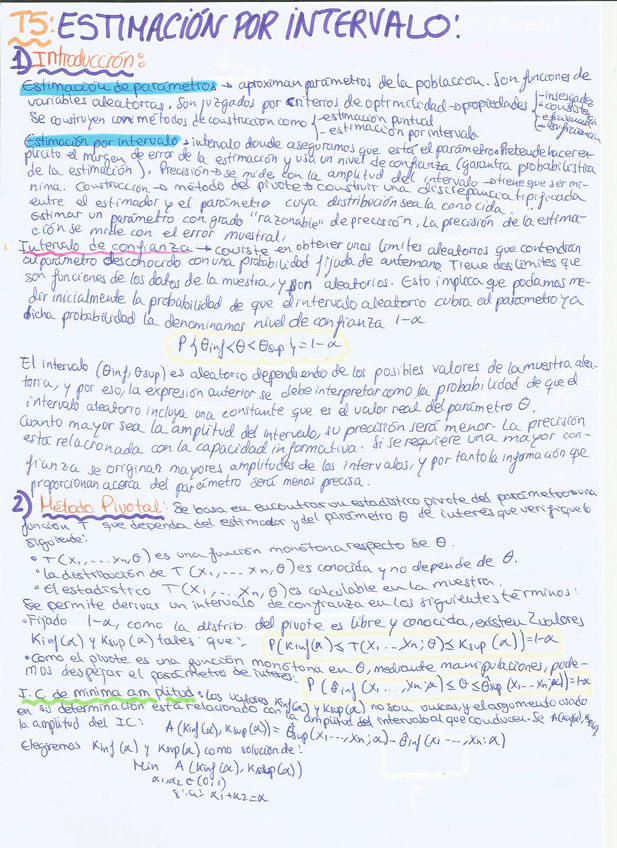 T5: ESTIMACIÓN POR INTERVALO:
1) Introducción:
Estimación de parámetros → aproximan parámetros de la población. Son funciones de
variables aleatorias. Son juzgados por criterios de optimilidad → propiedades { - insesgadez - consiste - eficiencia - suficiencia
Se construyen con métodos de construcción como { - estimación puntual
- estimación por intervalo
Estimación por intervalo → intervalo donde aseguramos que está el parámetro. Pretende hacer ex-
plícito el margen de error de la estimación y usa un nivel de confianza (garantía probabilística
de la estimación). Precisión → se mide con la amplitud del intervalo → tiene que ser mí-
nima. Construcción → método del pivote → construir una discrepancia tipificada
entre el estimador y el parámetro cuya distribución sea la conocida.
Estimar un parámetro con grado "razonable" de precisión. La precisión de la estima-
ción se mide con el error muestral.
Intervalo de confianza → consiste en obtener unos límites aleatorios que contendrán
al parámetro desconocido con una probabilidad fijada de antemano. Tiene dos límites que
son funciones de los datos de la muestra, y son aleatorios. Esto implica que podamos me-
dir inicialmente la probabilidad de que el intervalo aleatorio cubra al parámetro y a
dicha probabilidad la denominamos nivel de confianza 1-α
P{θinf<θ<θsup}=1-α
El intervalo (θinf, θsup) es aleatorio dependiendo de los posibles valores de la muestra alea-
toria, y por eso, la expresión anterior se debe interpretar como la probabilidad de que el
intervalo aleatorio incluya una constante que es el valor real del parámetro θ.
Cuanto mayor sea la amplitud del intervalo, su precisión será menor. La precisión
está relacionada con la capacidad informativa. Si se requiere una mayor con-
fianza se originan mayores amplitudes de los intervalos, y por tanto la información que
proporcionan acerca del parámetro será menos precisa.
2) Método Pivotal: Se basa en encontrar un estadístico pivote del parámetro → una
función T que dependa del estimador y del parámetro θ de interés que verifique lo
siguiente:
• T(X1, ... Xn, θ) es una función monótona respecto de θ.
• La distribución de T(X1, ... Xn, θ) es conocida y no depende de θ.
• El estadístico T(X1, ... Xn, θ) es calculable en la muestra.
Se permite derivar un intervalo de confianza en los siguientes términos:
• Fijado 1-α, como la distrib. del pivote es libre y conocida, existen 2 valores
Kinf(α) y Ksup(α) tales que: P(Kinf(α) ≤ T(X1, ... Xn; θ) ≤ Ksup(α))=1-α
• Como el pivote es una función monótona en θ, mediante manipulaciones, pode-
mos despejar el parámetro de interés: P(θ̂inf(X1, ..., Xn; α) ≤ θ ≤ θ̂sup(X1, ... Xn; α))=1-α
I.C de mínima amplitud: Los valores Kinf(α) y Ksup(α) no son únicos, y el argumento usado
en su determinación está relacionado con la amplitud del intervalo al que conducen. Sea A(Kinf(α), Ksup(α))
la amplitud del IC: A(Kinf(α), Ksup(α)) = θ̂sup(X1, ..., Xn; α) - θ̂inf(X1, ..., Xn; α)
Elegiremos Kinf(α) y Ksup(α) como solución de:
Min A(Kinf(α), Ksup(α))
α1, α2 ∈ (0, 1)
s.a: α1+α2=α